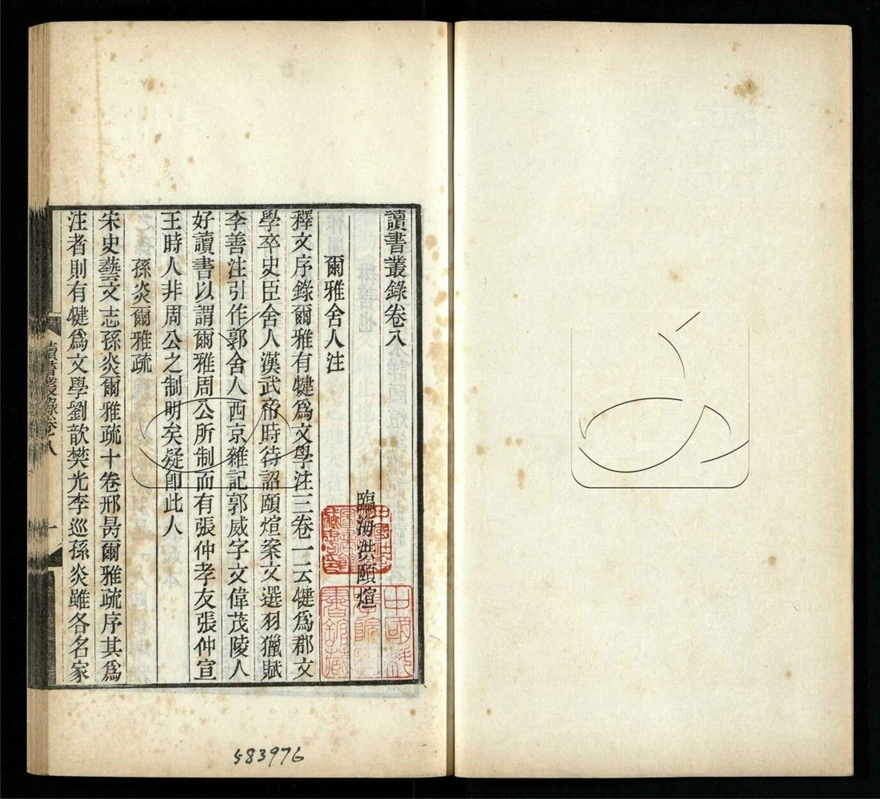 讀書叢錄卷八
臨海洪頤煊
爾雅舍人注
釋文序錄爾雅有犍爲文學注三卷一云犍爲郡文
學卒史臣舍人漢武帝時待詔頤煊案文選羽獵賦
李善注引作郭舍人西京雜記郭威字文偉茂陵人
好讀書以謂爾雅周公所制而有張仲孝友張仲宣
王時人非周公之制明矣疑卽此人
孫炎爾雅疏
宋史藝文志孫炎爾雅疏十卷邢昺爾雅疏序其爲
注者則有犍爲文學劉歆樊光李巡孫炎雖各名家
讀書叢錄卷八
一
583976